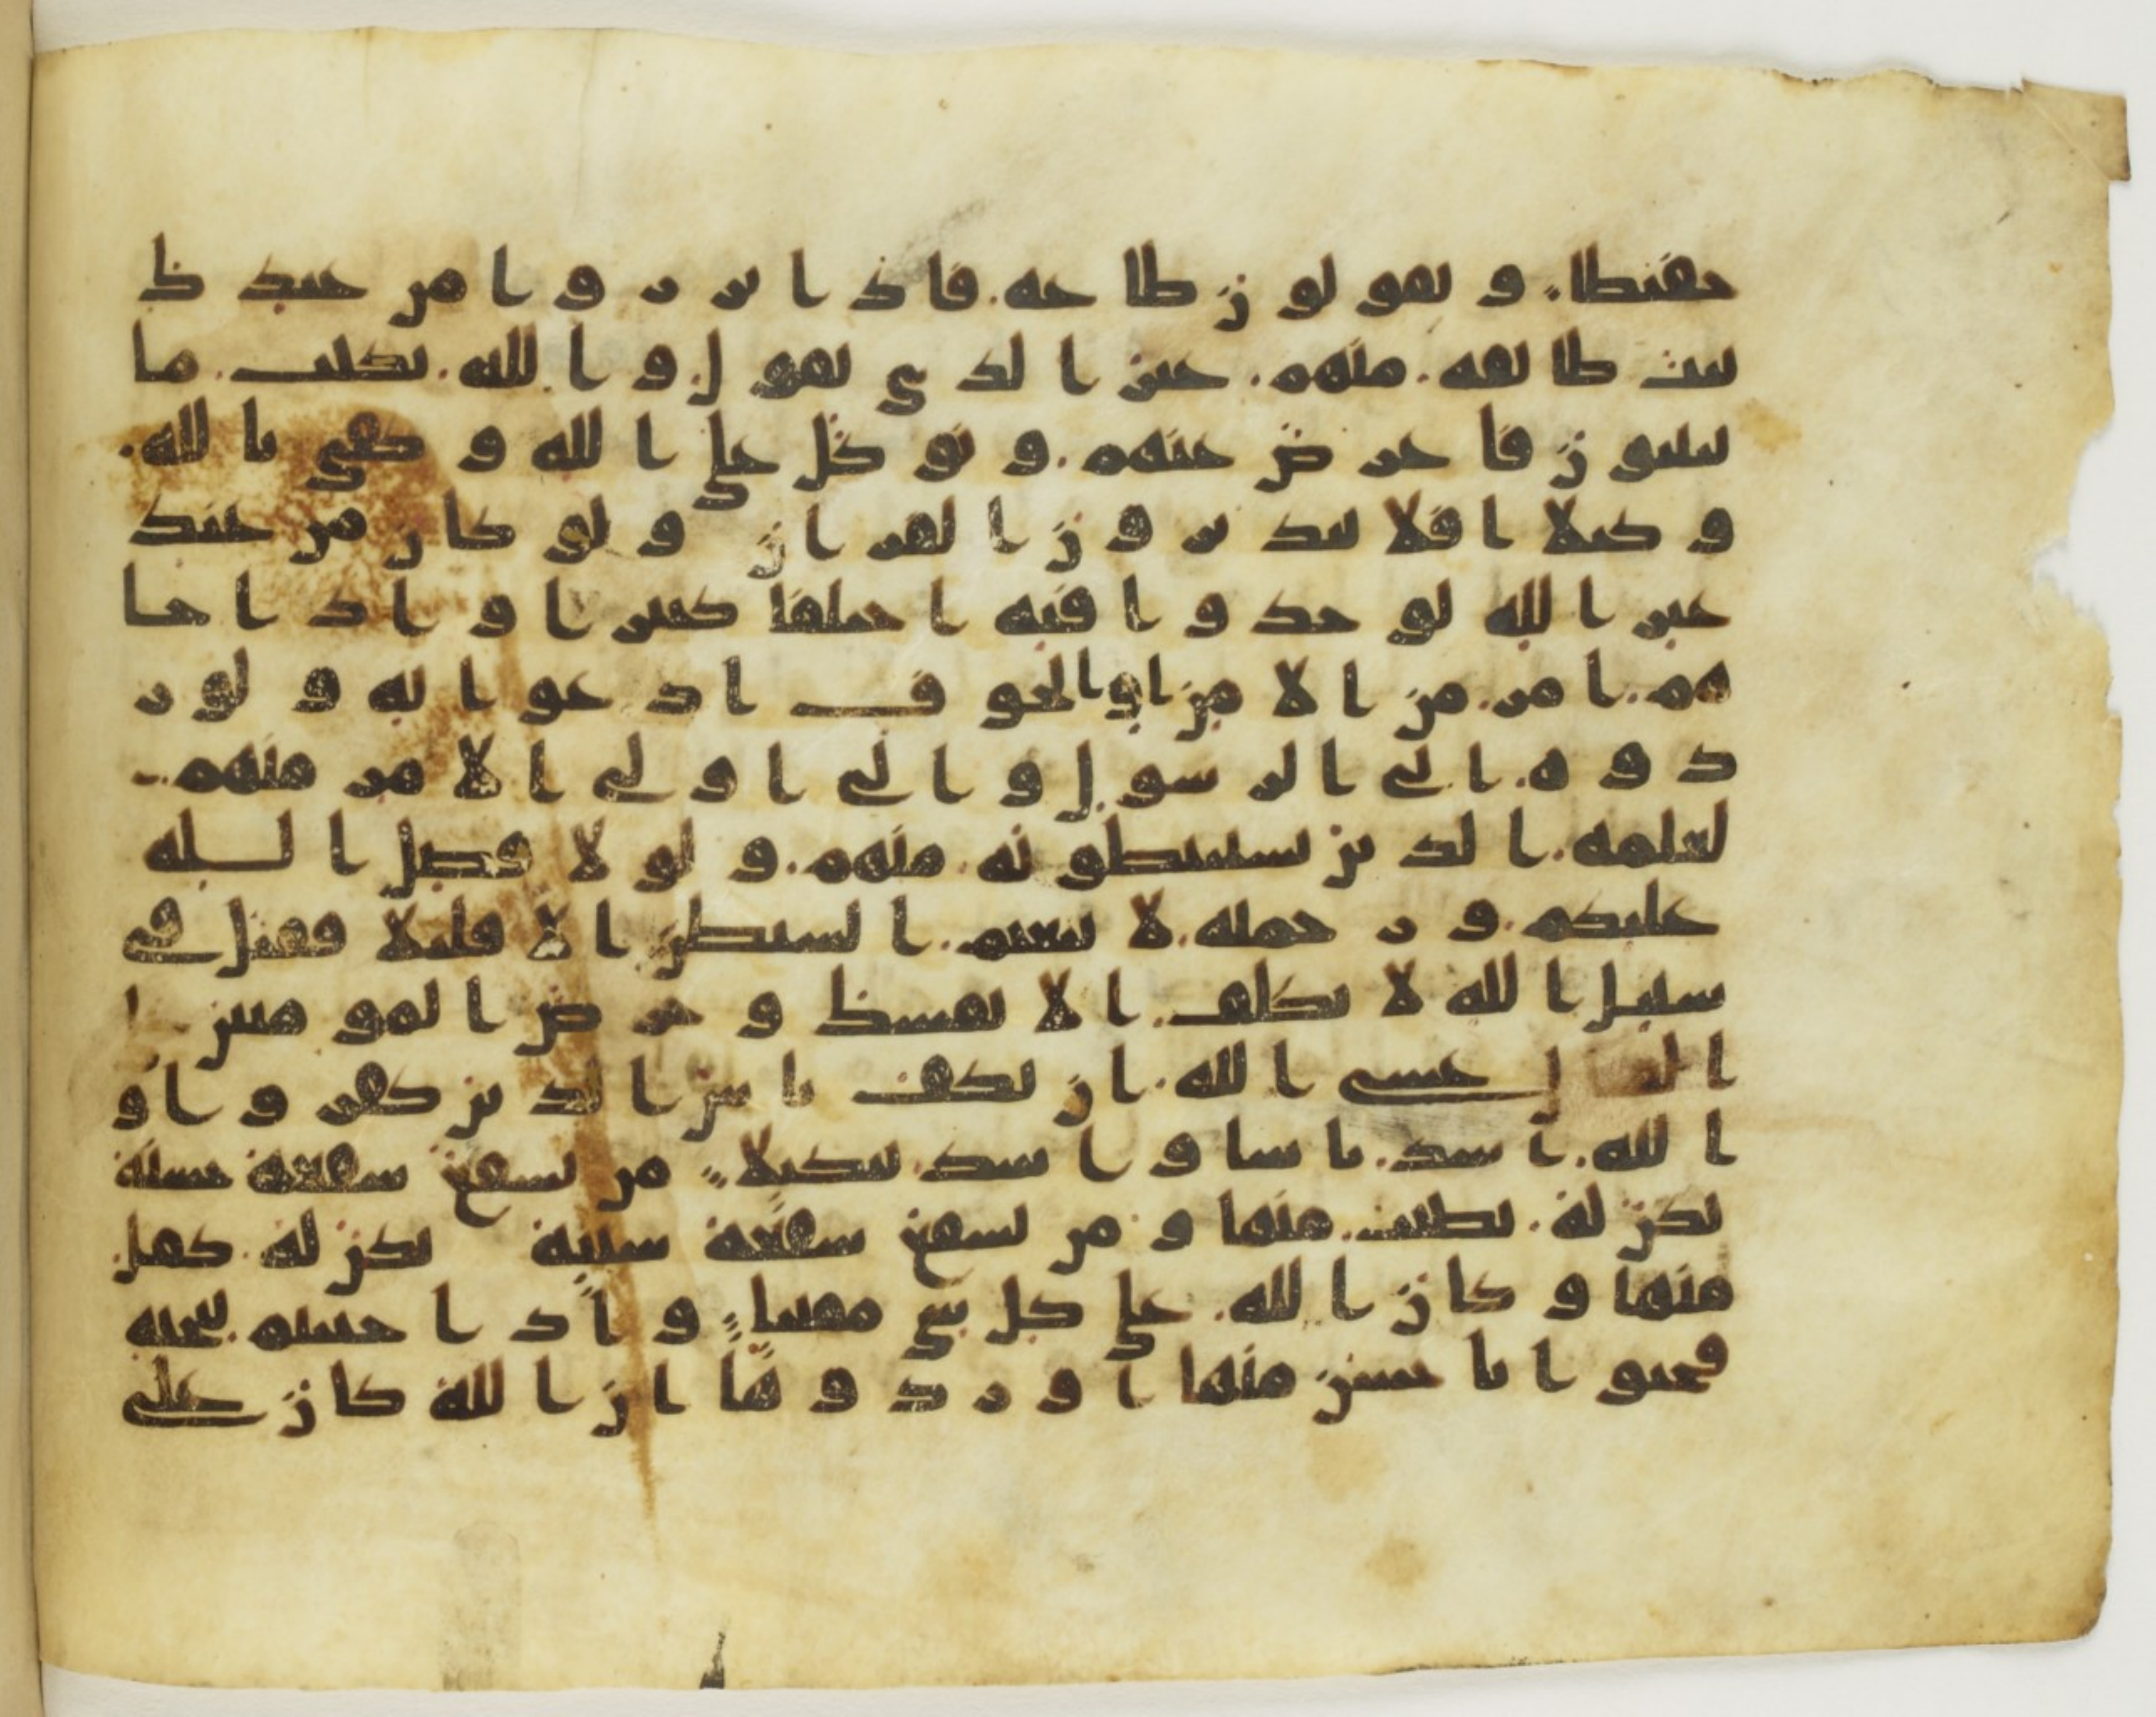 حفيظا ويقولون طاعة فاذا برزوا من عندك
بيت طائفة منهم غير الذي تقول والله يكتب ما
يبيتون فاعرض عنهم وتوكل على الله وكفى بالله
وكيلا افلا يتدبرون القران ولو كان من عند
غير الله لوجدوا فيه اختلفا كثيرا واذا جا
هم امر من الامن او الخوف اذعوا به ولو ر
دوه الى الرسول والى اولي الامر منهم
لعلمه الذين يستنبطونه منهم ولولا فضل الله
عليكم ورحمته لاتبعتم الشيطن الا قليلا فقتل في
سبيل الله لا تكلف الا نفسك وحرض المومنين
عسى الله ان يكف باس الذين كفروا و
الله اشد باسا واشد تنكيلا من يشفع شفعة حسنة
يكن له نصيب منها ومن يشفع شفعة سيئة يكن له كفل
منها وكان الله على كل شي مقيتا واذا حييتم بتحية
فحيوا باحسن منها او ردوها ان الله كان على